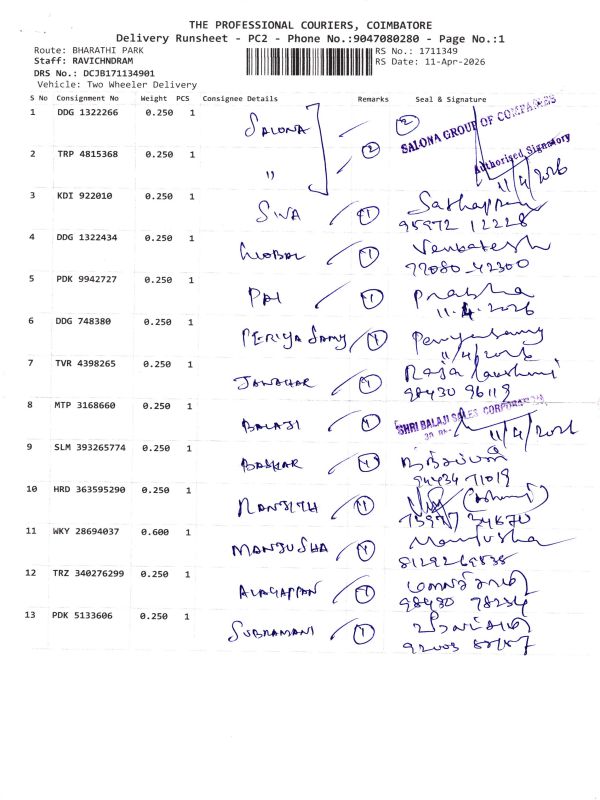 THE PROFESSIONAL COURIERS, COIMBATORE
Delivery Runsheet - PC2 - Phone No.:9047080280 - Page No.:1
Route: BHARATHI PARK RS No.: 1711349
Staff: RAVICHNDRAM RS Date: 11-Apr-2026
DRS No.: DCJB171134901
Vehicle: Two Wheeler Delivery
S No Consignment No Weight PCS Consignee Details Remarks Seal & Signature
1 DDG 1322266 0.250 1 SALONA 2 2 SALONA GROUP OF COMPANIES
Authorised Signatory
11/4/2026
2 TRP 4815368 0.250 1 "
3 KDI 922010 0.250 1 SIVA 1 Sathappan
95972 12228
4 DDG 1322434 0.250 1 GLOBAL 1 Venkatesh
77080-42300
5 PDK 9942727 0.250 1 PAI 1 Prabha
11.4.2026
6 DDG 748380 0.250 1 PERIYA SAMY 1 Periyasamy
11/4/2026
7 TVR 4398265 0.250 1 JAWAHAR 1 Raja Lakshmi
98430 96118
8 MTP 3168660 0.250 1 BALAJI 1 SHRI BALAJI SALES CORPORATION
11/4/2026
9 SLM 393265774 0.250 1 BASKAR 1
94434 71019
10 HRD 363595290 0.250 1 RANJITH 1
75987 34670
11 WKY 28694037 0.600 1 MANJUSHA 1 Manjusha
8129269838
12 TRZ 340276299 0.250 1 ALAGAPPAN 1
98430 78234
13 PDK 5133606 0.250 1 SUBRAMANI 1
92003